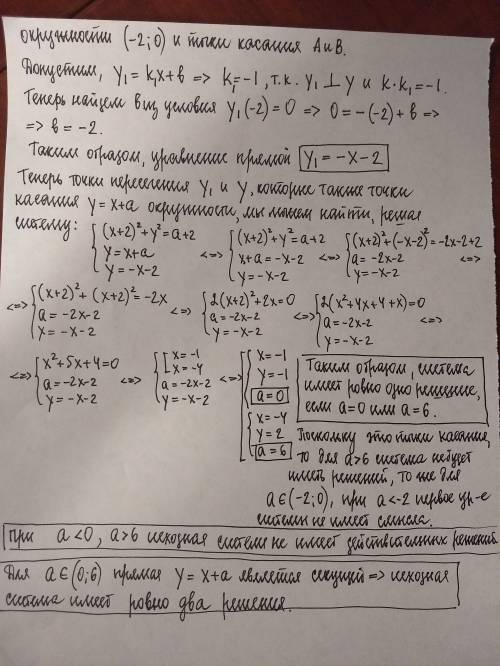 окружности (-2;0) и точки касания A и B.
Допустим, y₁ = k₁x + b => k₁ = -1, т.к. y₁ ⊥ y и k·k₁ = -1.
Теперь найдем b из условия y₁(-2) = 0 => 0 = -(-2) + b =>
=> b = -2.
Таким образом, уравнение прямой y₁ = -x - 2
Теперь точки пересечения y₁ и y, которые также точки
касания y = x + a окружности, мы можем найти, решая
систему:
{ (x+2)² + y² = a+2 { (x+2)² + y² = a+2 { (x+2)² + (-x-2)² = -2x-2+2
y = x+a <=> x+a = -x-2 <=> a = -2x-2 <=>
y = -x-2 y = -x-2 y = -x-2
<=> { (x+2)² + (x+2)² = -2x { 2(x+2)² + 2x = 0 { 2(x²+4x+4+x) = 0
a = -2x-2 <=> a = -2x-2 <=> a = -2x-2 <=>
x = -x-2 y = -x-2 y = -x-2
<=> { x²+5x+4 = 0 { [ x = -1 [ { x = -1 Таким образом, система
a = -2x-2 <=> x = -4 <=> y = -1 имеет ровно одно решение,
y = -x-2 a = -2x-2 a = 0 если a = 0 или a = 6.
y = -x-2 { x = -4 Поскольку это точки касания,
y = 2 то для a > 6 система не будет
a = 6 иметь решений, то же для
a ∈ (-2;0), при a < -2 первое ур-е
системы не имеет смысла.
При a < 0, a > 6 исходная система не имеет действительных решений
Для a ∈ (0;6) прямая y = x + a является секущей => исходная
система имеет ровно два решения.